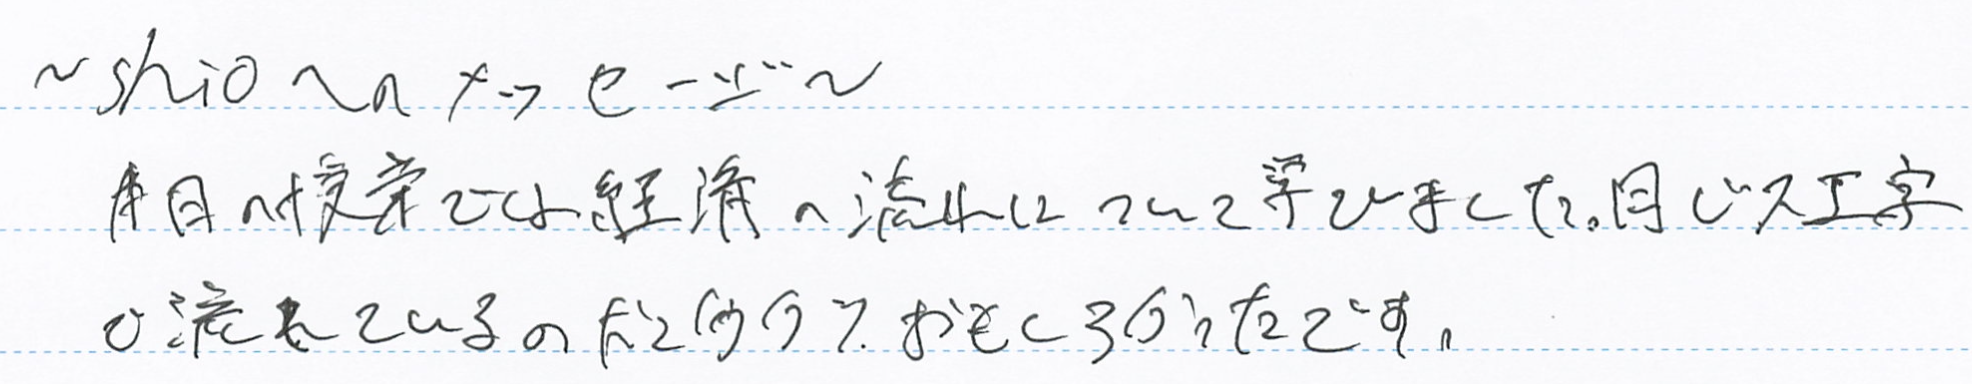 ~shioへのメッセージ~
本日の授業では経済の流れについて学びました。同じス工字
で流れているのだと分かり、おもしろかったです。